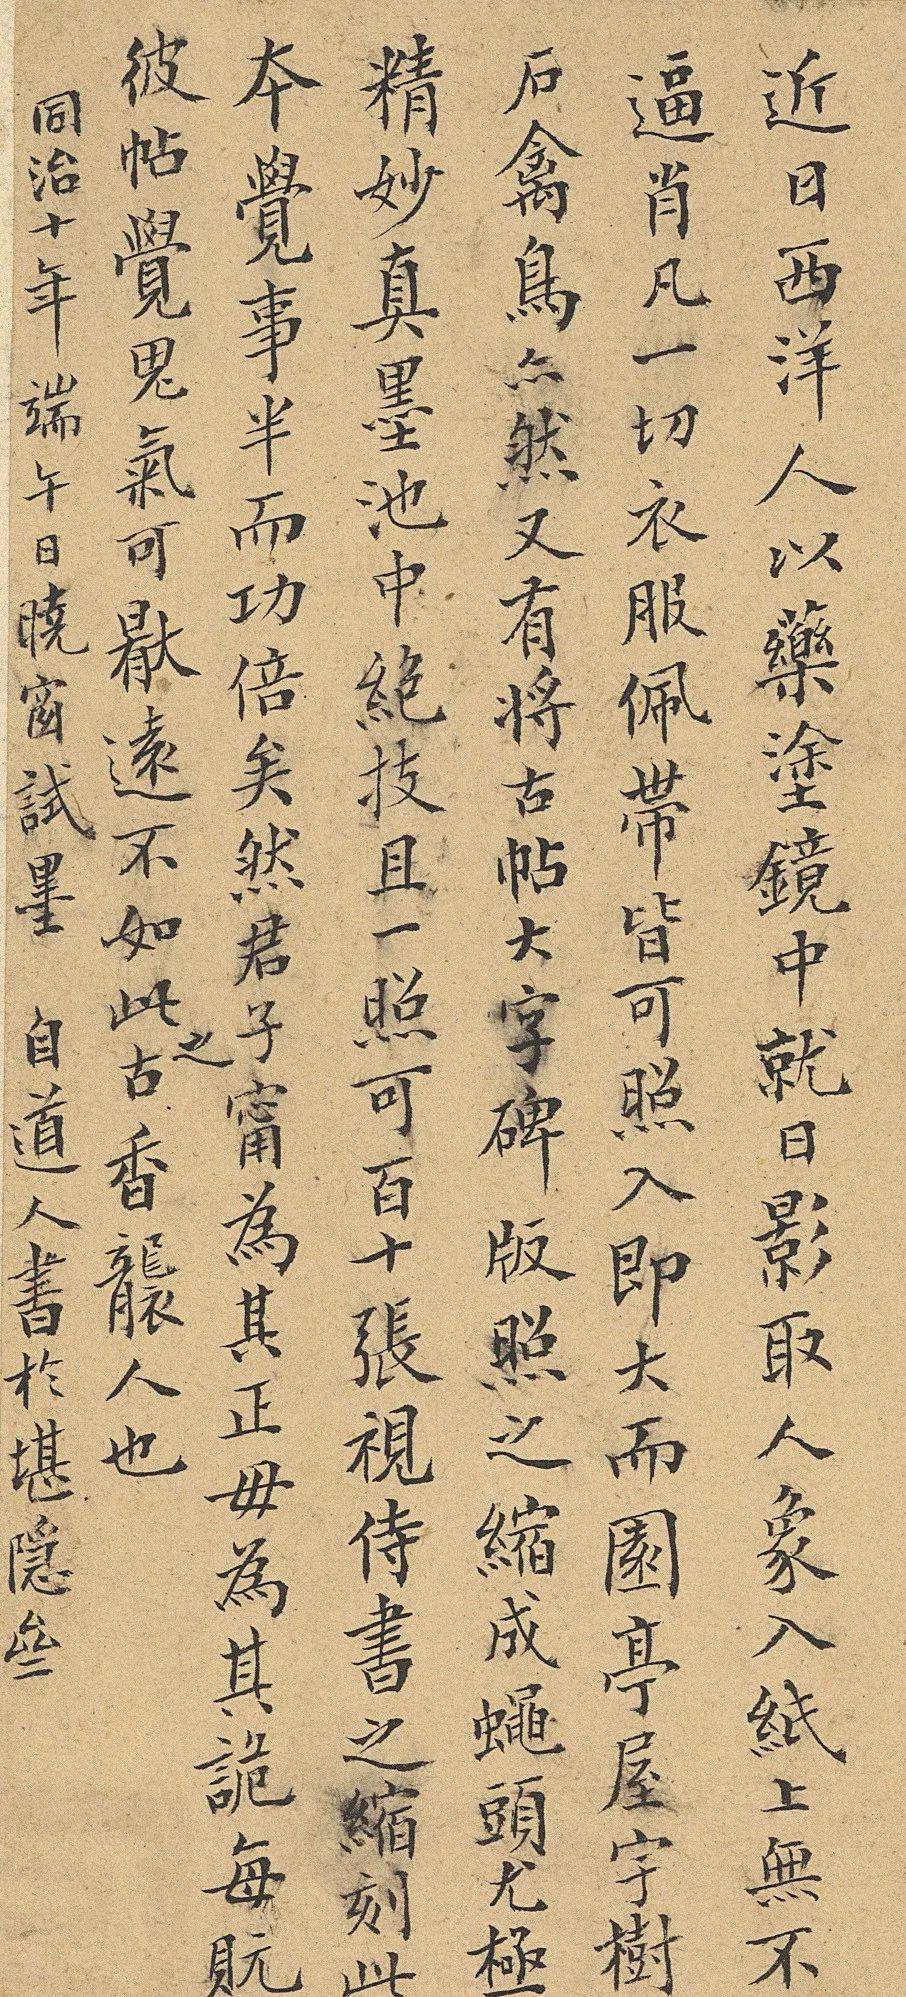 近日西洋人以藥塗鏡中就日影取人象入紙上無不
逼肖凡一切衣服佩帶皆可照入即大而園亭屋宇樹
石禽鳥亦然又有將古帖大字碑版照之縮成蠅頭尤極
精妙真墨池中絕技且一照可百十張視侍書之縮刻此
本覺事半而功倍矣然君子甯為其正毋為其詭每貦
彼帖覺鬼氣可厭遠不如此古之香襲人也
同治十年端午日曉窗試墨 自道人書於堪隱